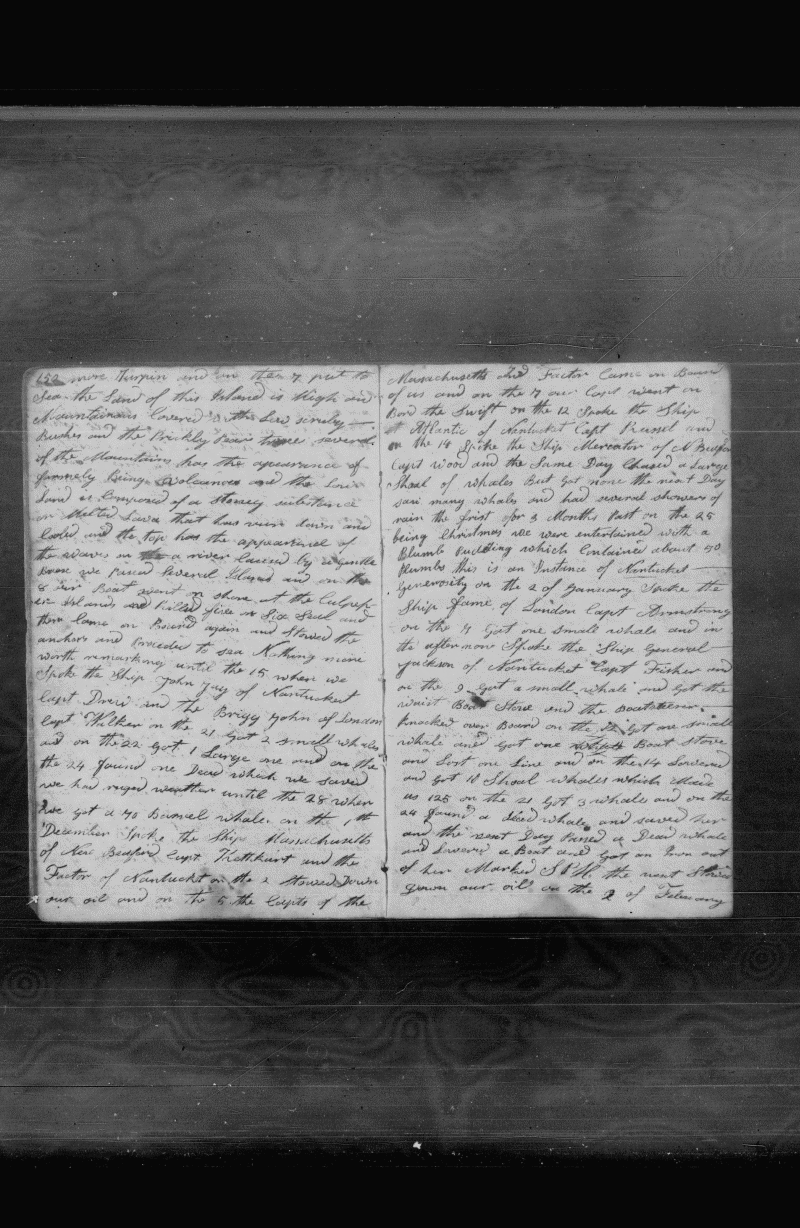 150 more Turpin and on the 7 put to
Sea the Land of this Island is High and
Mountainous Covered with Low scruby
Bushes and the Prickly Pear several
of the Mountains has the apearance of
formely being Volcanoes and the Low
Land is Composed of a Stoney substance
or Melted Lava that has run down and
Cooled and the top has the appearance of
the waves in a river Caused by a gentle
we Passed Several Islands and on the
8 our Boat went on shore at the Culpep
er Islands and Killed five or Six Seal and
then Came on Board again and Stowed the
anchors and Proceded to sea Nothing more
worth remarking until the 15 when we
Spoke the Ship John Jay of Nantucket
Capt Drew and the Brigg John of London
Capt Walker on the 21 Got 2 small whales
and on the 22 Got 1 Large one and on the
the 24 found one Dead which we saved
we had ruged weather until the 28 when
we got a 70 Barrel whale on the 1th
December Spoke the Ship Massachusetts
of New Bedford Capt and the
Factor of Nantucket on the 2 Stowed Down
our oil and on the 5 the Capts of the
Massachusetts and Factor Came on Board
of us and on the 7 our Capt went on
Bord the Swift on the 12 Spoke the Ship
Atlantic of Nantucket Capt Russel and
on the 14 Spoke the Ship Mercator of N Bedford
Capt Wood and the Same Day Chased a Large
Shoal of whales But Got none the next Day
saw many whales and had several showers of
rain the frist for 3 Months Past on the 25
being Christmas we were entertained with a
Plumb Pudding which Contained about 50
Plumbs this is an Instance of Nantucket
Generosity on the 2 of January Spoke the
Ship Fame of London Capt Armstrong
on the 4 Got one small whale and in
the afternoon Spoke the Ship General
Jackson of Nantucket Capt Fisher and
on the 9 Got a small whale and Got the
waist Boat Stove and the Boatsteerer
Knocked over Board on the 12 Got one small
whale and Got one Boat Stove
and Lost one Line and on the 14 Lowered
and got 10 Shoal whales which Made
us 125 on the 21 Got 3 whales and on the
24 found a Dead whale and saved her
and the next Day Passed a Dead whale
and Lowered a Boat and Got an Iron out
of her Marked the next Stowed
down our oil on the 2 of Febuary